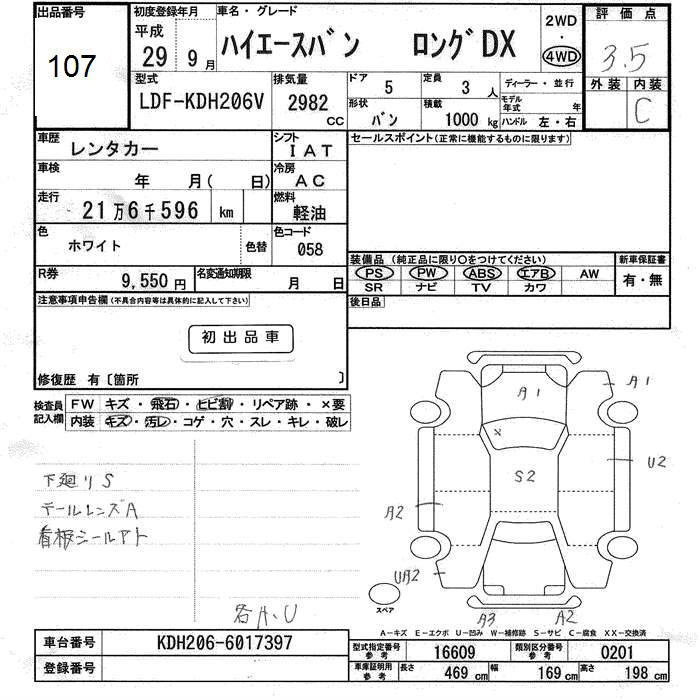 出品番号 初度登録年月 車名・グレード 2WD 評価点
107 平成 29年 9月 ハイエースバン ロングDX ・ 4WD 3.5
型式 排気量 ドア 5 定員 3人 ディーラー・並行 外装 内装
LDF-KDH206V 2982cc 形状 バン 積載 1000kg モデル年式 年 ハンドル 左・右 C
車歴 レンタカー シフト IAT セールスポイント(正常に機能するものに限ります)
車検 年 月( 日) 冷房 AC
走行 21万6千596 km 燃料 軽油
色 ホワイト 色替 色コード 058
装備品(純正品に限り○をつけてください) 新車保証書
R券 9,550円 名変通知期限 月 日 PS PW ABS エアB AW 有・無
SR ナビ TV カワ
注意事項申告欄(不具合内容等は具体的に記入して下さい) 後日品
初出品車
修復歴 有〔箇所 〕
検査員記入欄 FW キズ・飛石・ヒビ割・リペア跡・×要
内装 キズ・汚レ・コゲ・穴・スレ・キレ・破レ
A1 A1
×
S2 U2
下廻りS
テールレンズA A2
看板シールアト
UA2
スペア
各A、U A3 A2
A-キズ E-エクボ U-凹み W-補修跡 S-サビ C-腐食 XX-交換済
車台番号 KDH206-6017397 型式指定番号 参考 16609 類別区分番号 参考 0201
登録番号 車庫証明用 参考 長さ 469cm 幅 169cm 高さ 198cm